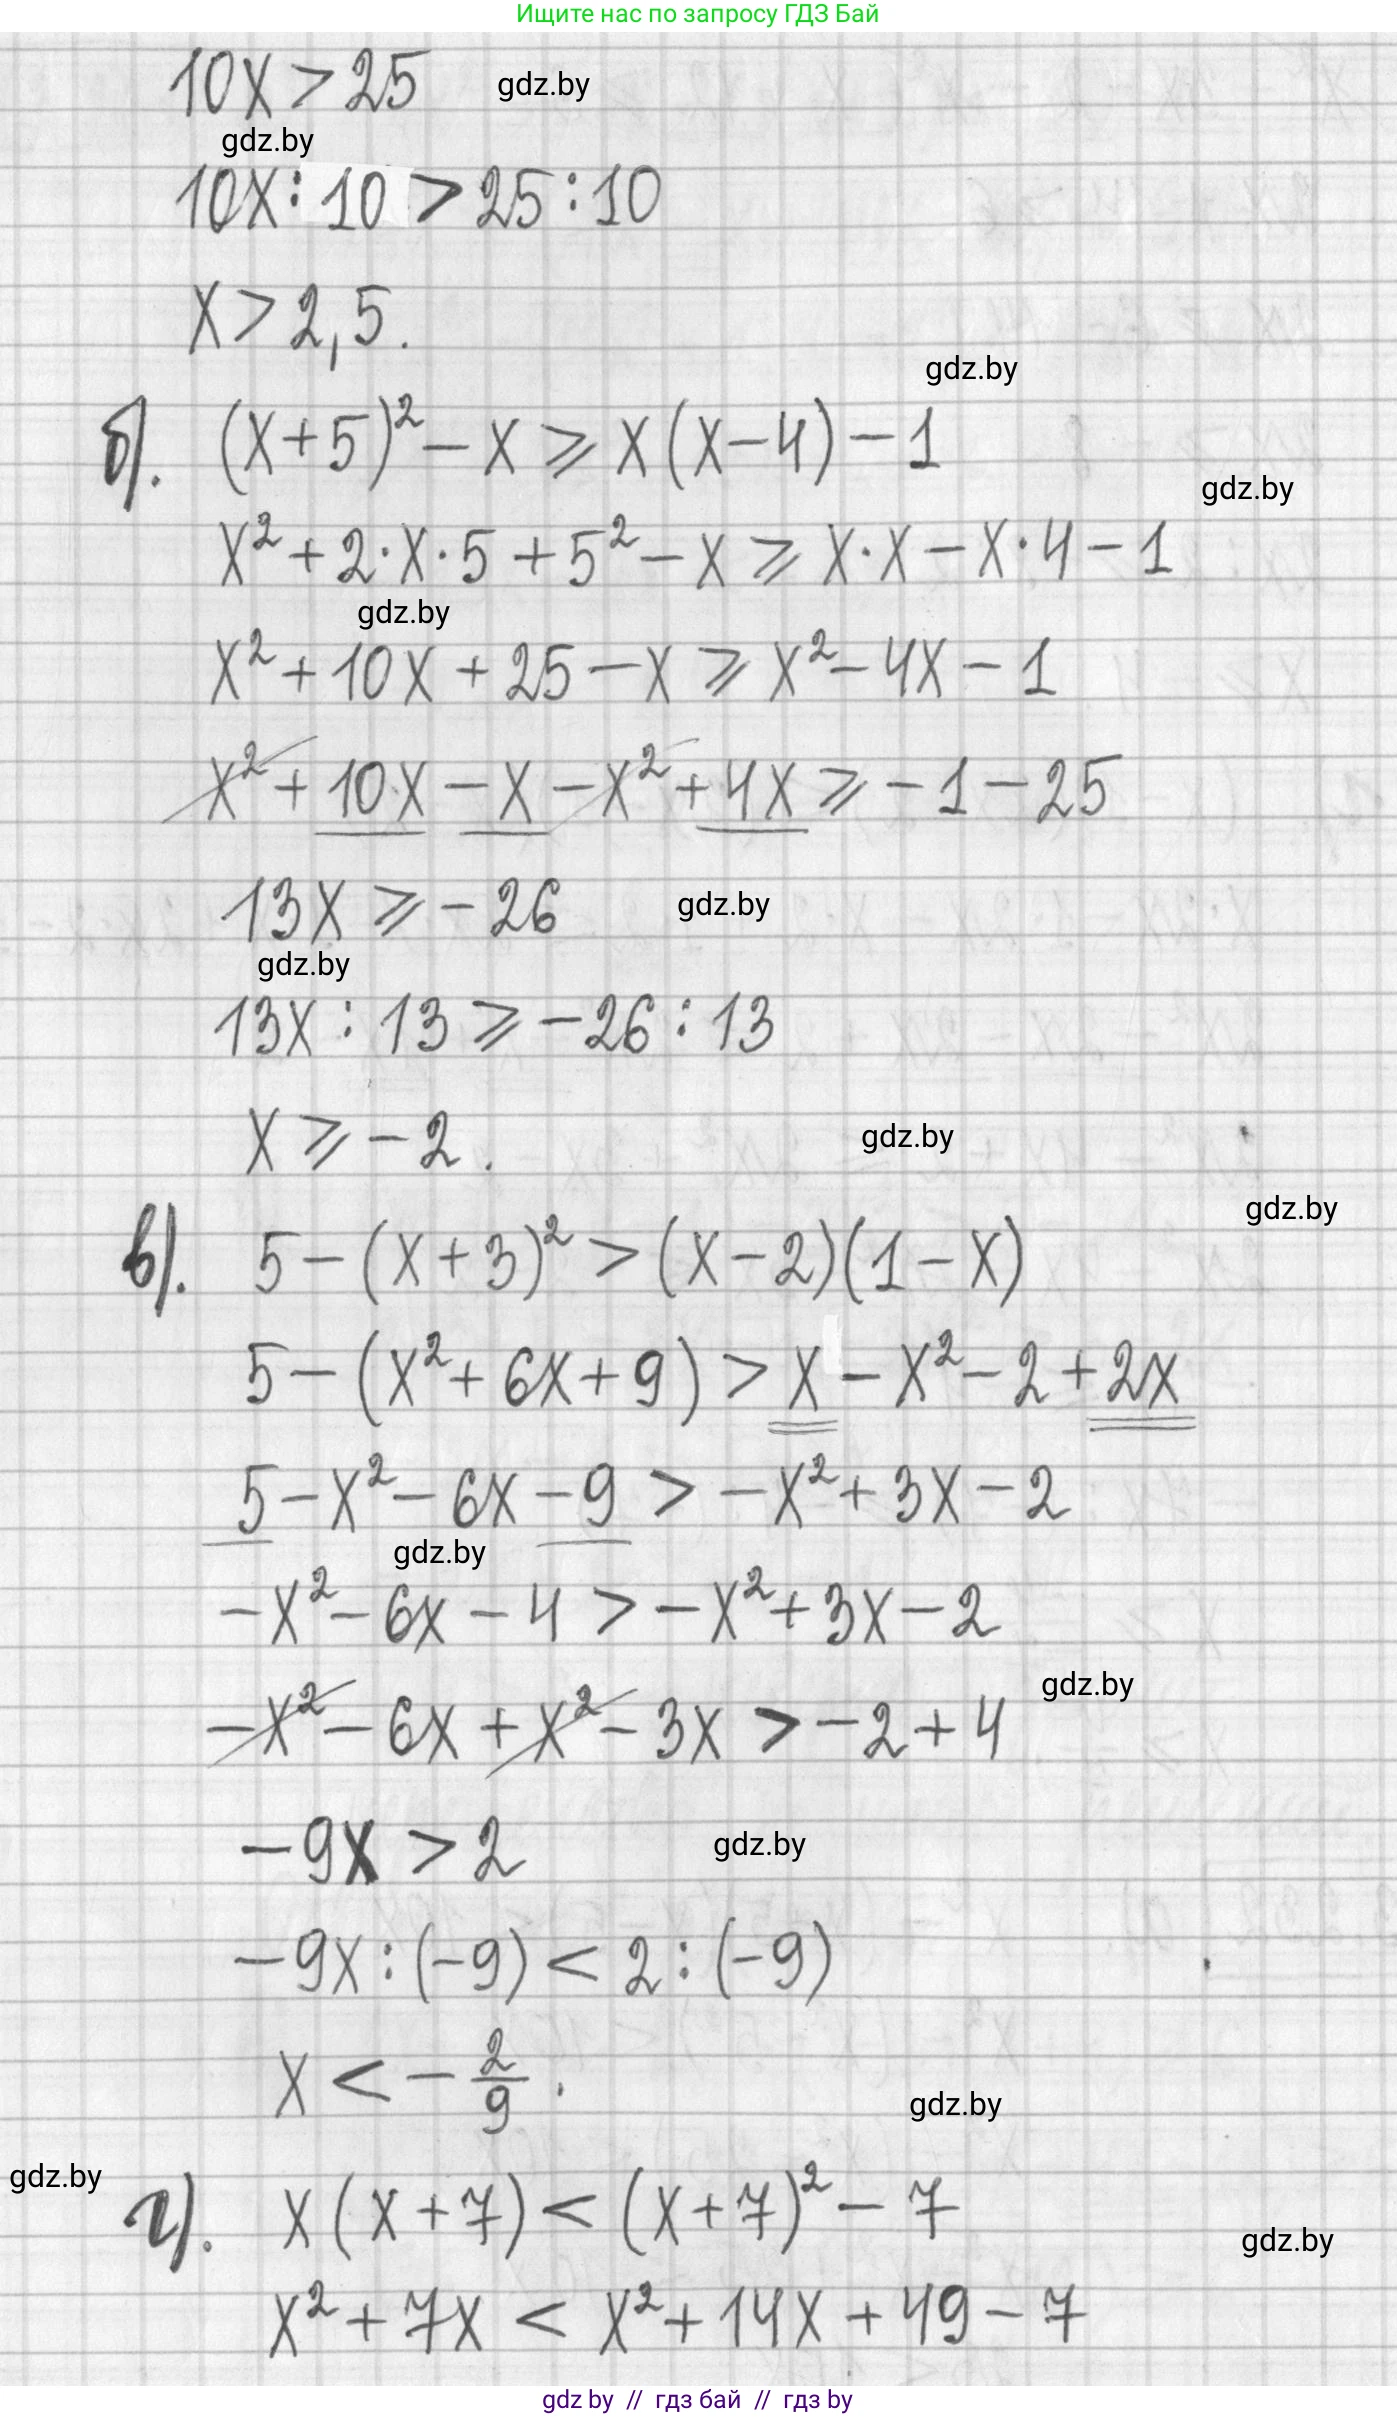 Ищите нас по запросу ГДЗ Бай
10x > 25 gdz.by
gdz.by
10x : 10 > 25 : 10
x > 2,5.
gdz.by
б). (x+5)² − x ⩾ x(x−4) − 1
gdz.by
x² + 2·x·5 + 5² − x ⩾ x·x − x·4 − 1
gdz.by
x² + 10x + 25 − x ⩾ x² − 4x − 1
x² + 10x − x − x² + 4x ⩾ −1 − 25
13x ⩾ −26 gdz.by
gdz.by
13x : 13 ⩾ −26 : 13
x ⩾ −2. gdz.by
gdz.by
в). 5 − (x+3)² > (x−2)(1−x)
5 − (x² + 6x + 9) > x − x² − 2 + 2x
5 − x² − 6x − 9 > −x² + 3x − 2
gdz.by
−x² − 6x − 4 > −x² + 3x − 2
gdz.by
−x² − 6x + x² − 3x > −2 + 4
−9x > 2 gdz.by
−9x : (−9) < 2 : (−9)
x < −2/9.
gdz.by
gdz.by
г). x(x+7) < (x+7)² − 7
gdz.by
x² + 7x < x² + 14x + 49 − 7
gdz by // гдз бай // гдз by